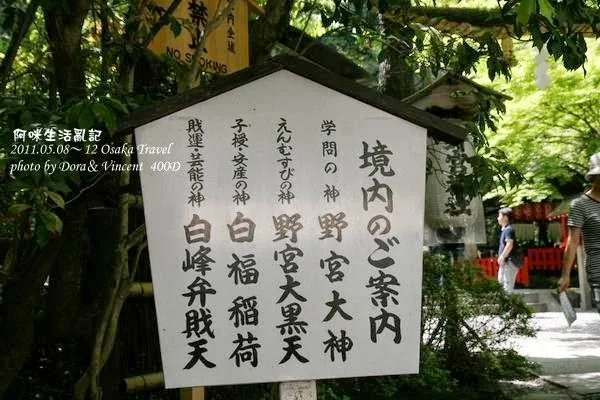 境内のご案内
学問の神 野宮大神
えんむすびの神 野宮大黒天
子授・安産の神 白福稲荷
財運・芸能の神 白峰弁財天
NO SMOKING
阿咪生活亂記
2011.05.08～ 12 Osaka Travel
photo by Dora& Vincent 400D